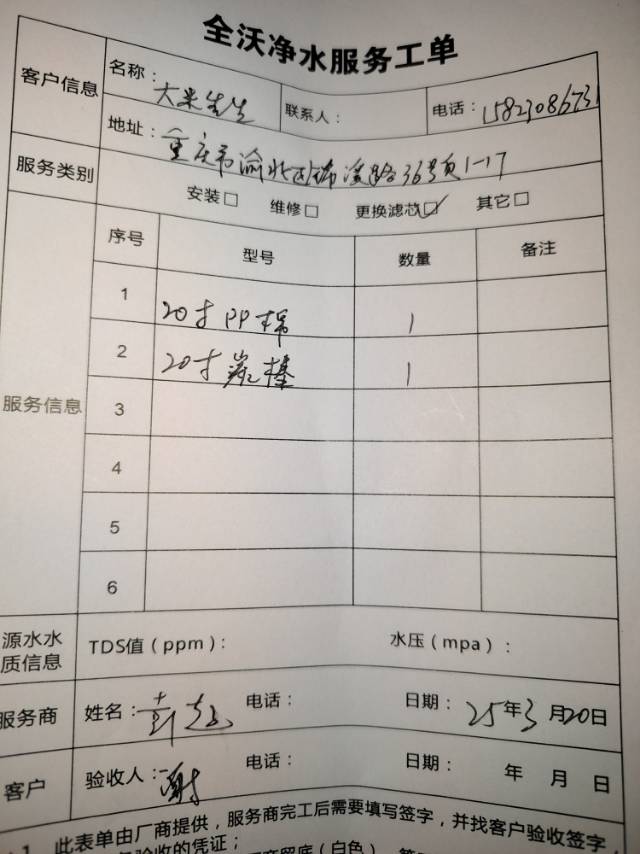 全沃净水服务工单
客户信息 名称： 大米先生 联系人： 电话：
地址： 重庆市渝北区 36号 1-17
服务类别 安装□ 维修□ 更换滤芯☑ 其它□
服务信息 序号 型号 数量 备注
1 20寸PP棉 1
2 20寸炭棒 1
3
4
5
6
源水水质信息 TDS值（ppm）： 水压（mpa）：
服务商 姓名： 彭 电话： 日期： 25年3月20日
客户 验收人： 谢 电话： 日期： 年 月 日
1、此表单由厂商提供，服务商完工后需要填写签字，并找客户验收签字
验收的凭证；
（白色）